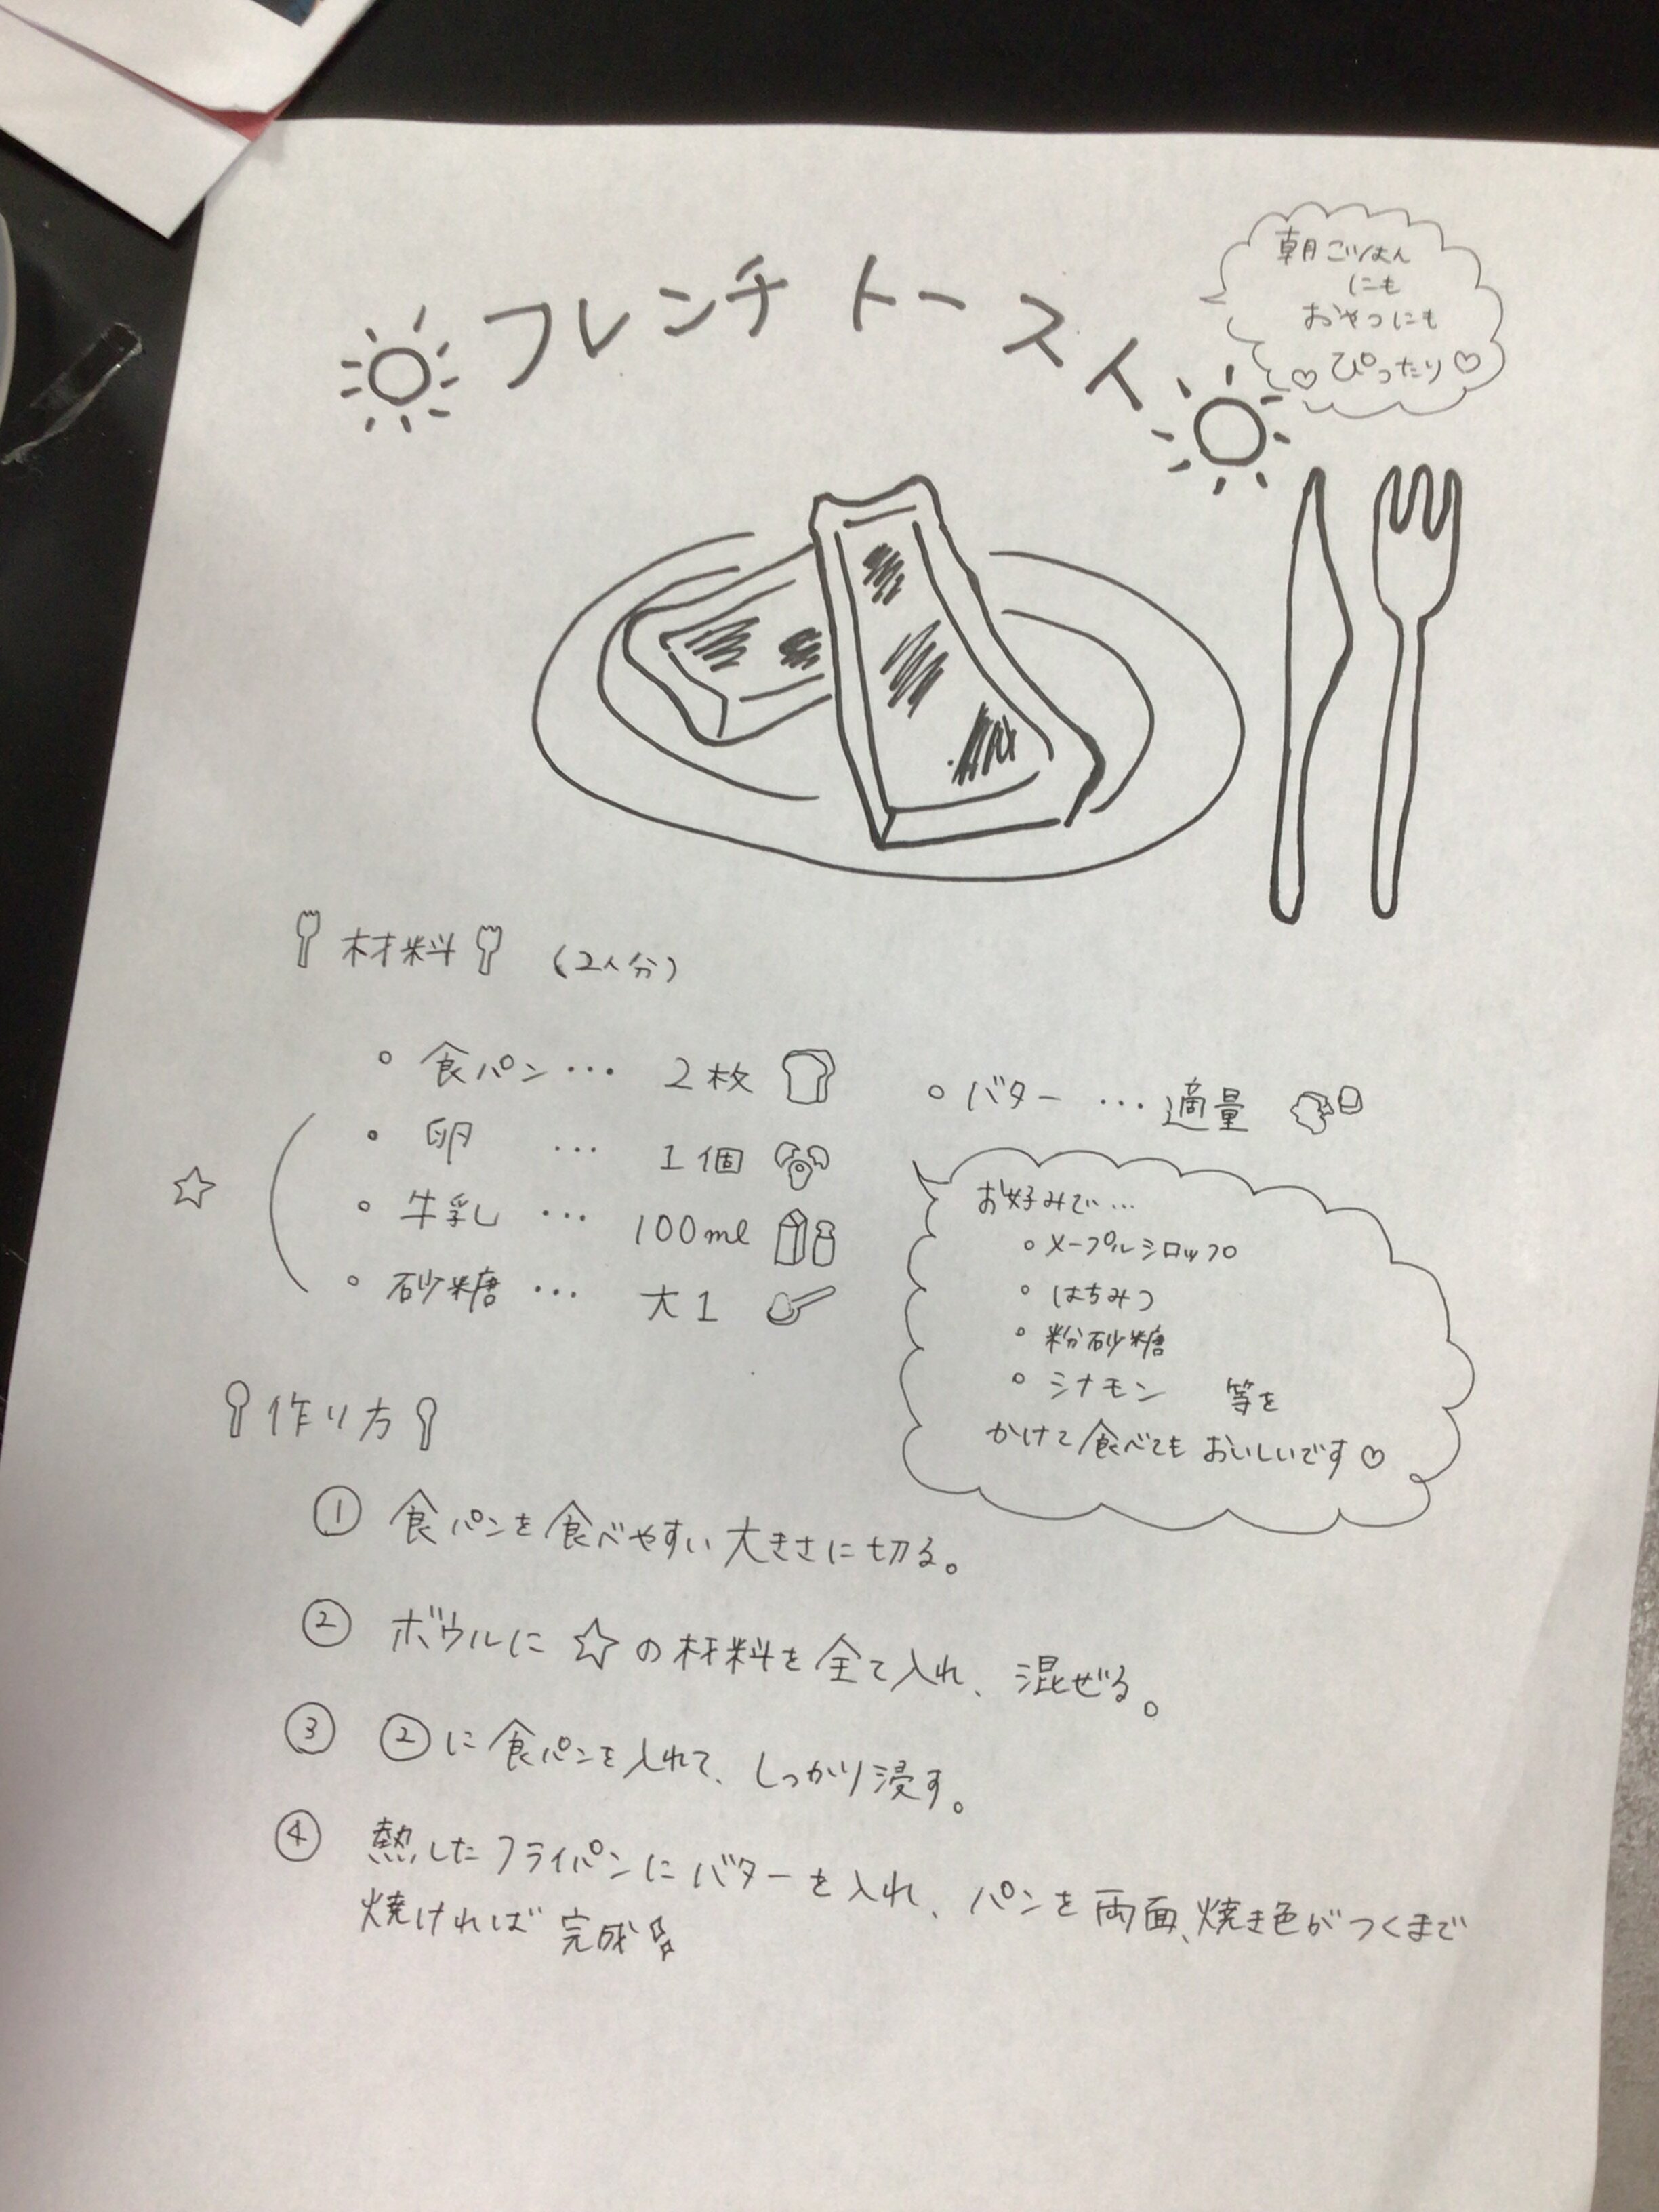 フレンチトースト
朝ごはん
にも
おやつにも
♡ぴったり♡
材料 (2人分)
・食パン… 2枚
・卵 … 1個
・牛乳 … 100ml
・砂糖 … 大1
☆
・バター … 適量
お好みで…
・メープルシロップ
・はちみつ
・粉砂糖
・シナモン 等を
かけて食べても おいしいです♡
作り方
① 食パンを食べやすい大きさに切る。
② ボウルに☆の材料を全て入れ、混ぜる。
③ ②に食パンを入れて、しっかり浸す。
④ 熱したフライパンにバターを入れ、パンを両面、焼き色がつくまで
焼ければ完成